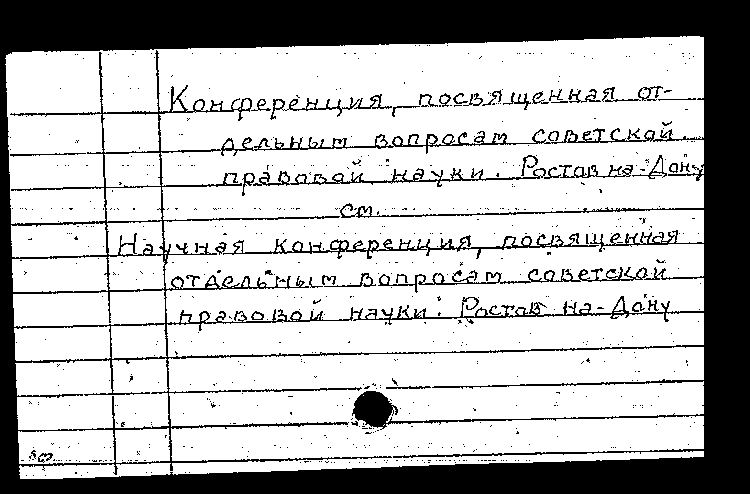 Конференция, посвященная от-
дельным вопросам советской
правовой науки. Ростов на-Дону
см.
Научная конференция, посвященная
отдельным вопросам советской
правовой науки. Ростов на-Дону